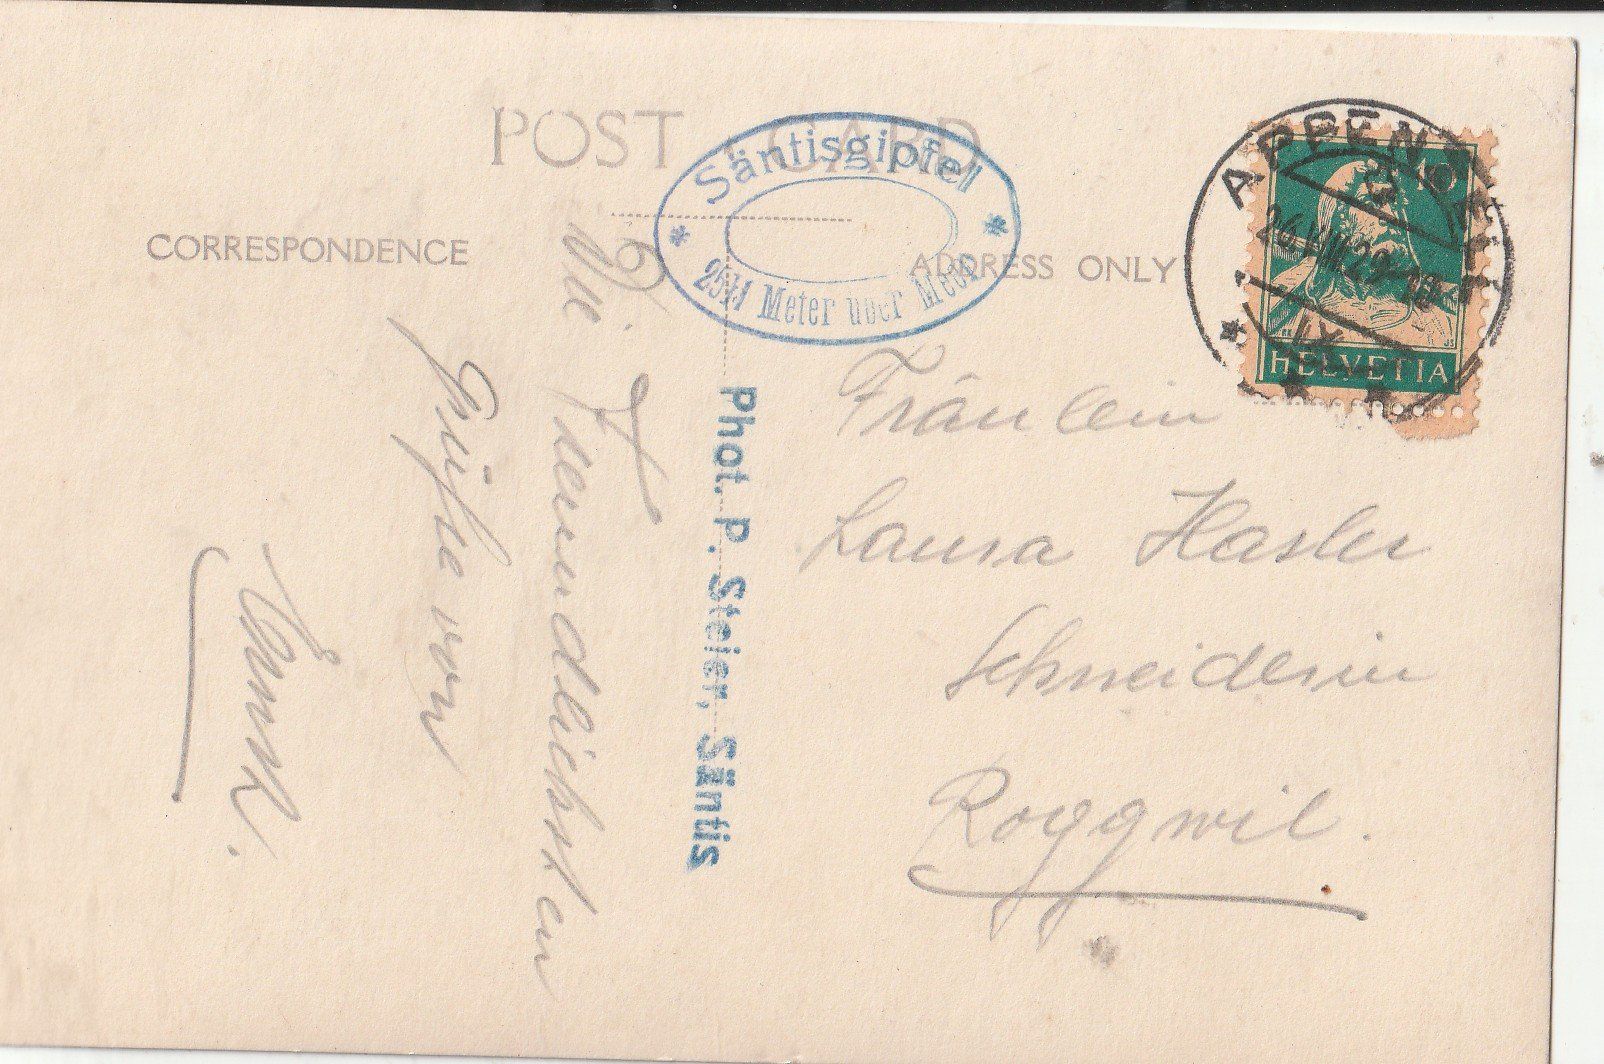 POST CARD
CORRESPONDENCE
ADDRESS ONLY
Säntisgipfel
* *
Meter über Meer
Phot. P. Steier, Säntis
APPENZELL
26.VIII.29
10
HELVETIA
Die freundlichsten
Grüsse von
Fräulein
Laura Hasler
Schneiderin
Roggwil.